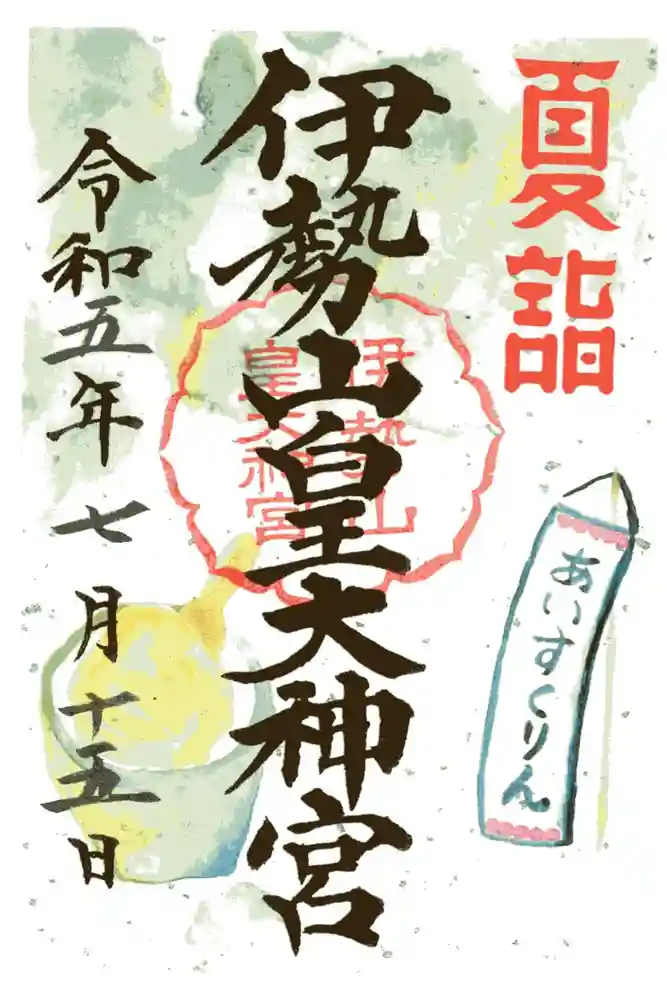 夏詣
伊勢山皇大神宮
伊勢山
皇大神宮
令和五年七月十五日
あいすくりん